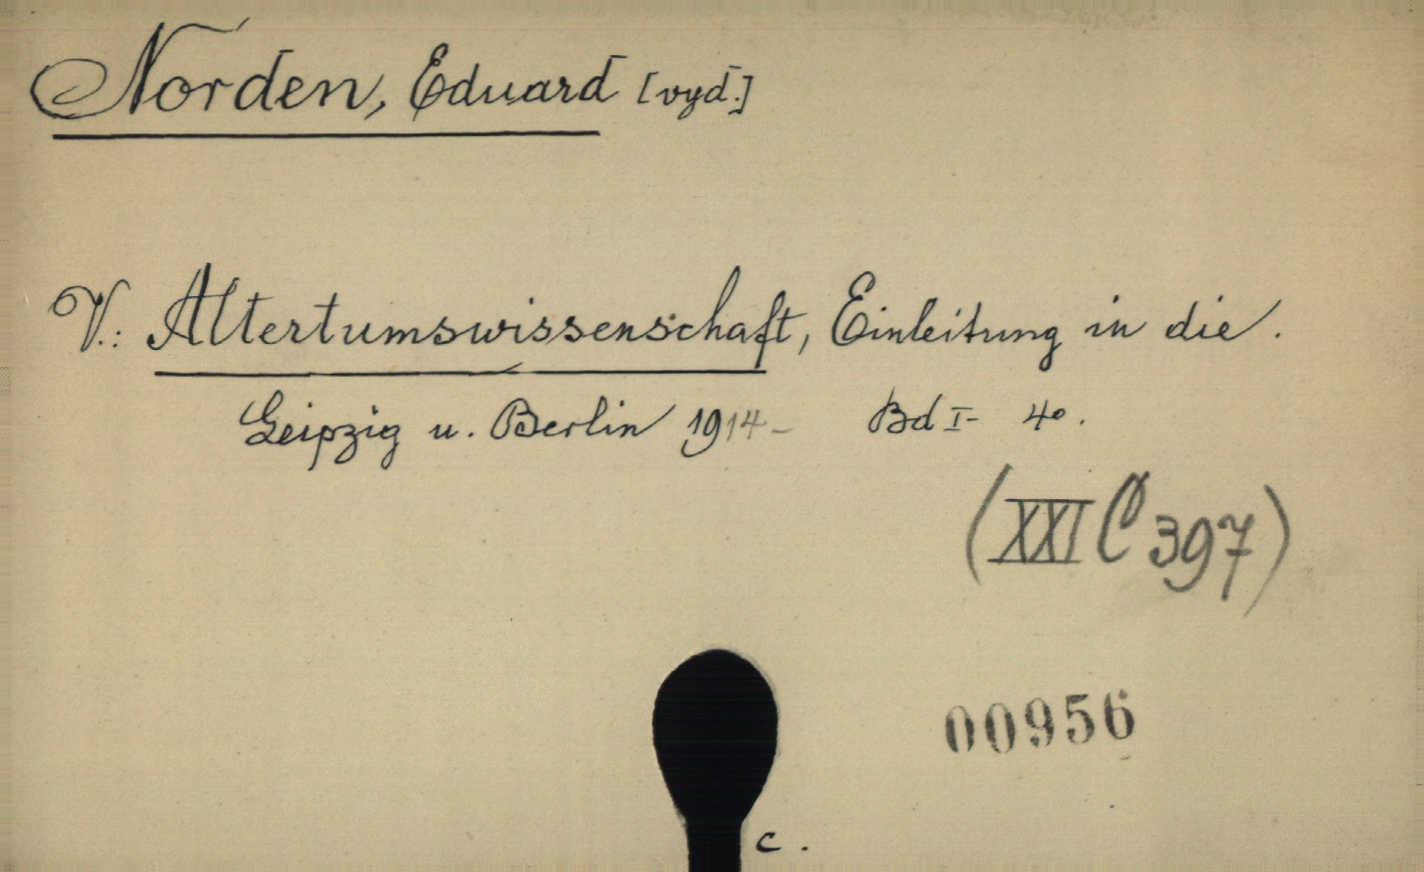 Norden, Eduard [vyd.]
V.: Altertumswissenschaft, Einleitung in die.
Leipzig u. Berlin 1914- Bd I- 4°.
(XXI C 397)
00956
c.